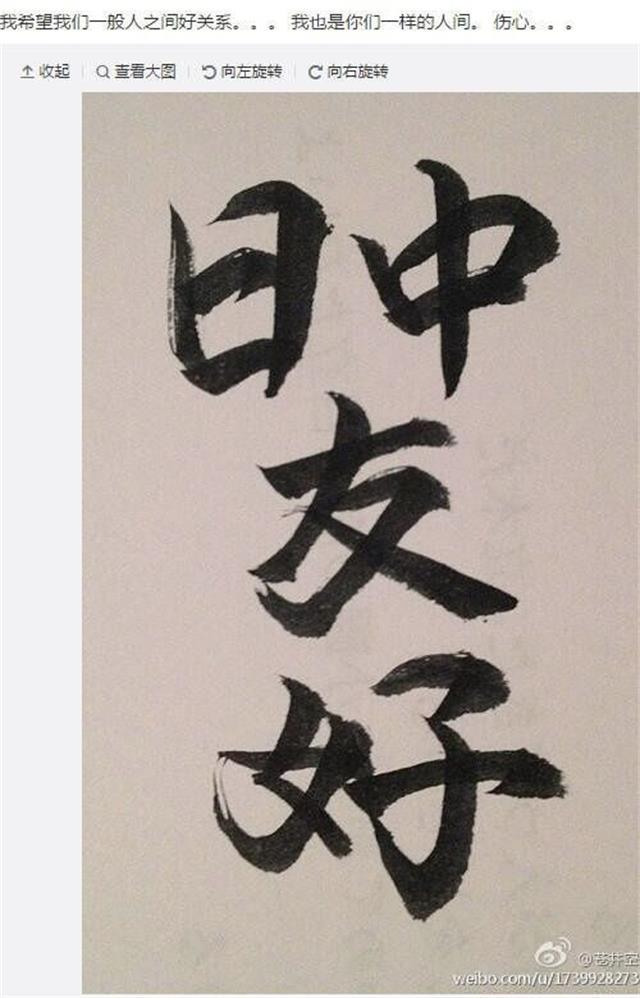 我希望我们一般人之间好关系。。。 我也是你们一样的人间。 伤心。。。
收起 查看大图 向左旋转 向右旋转
日中
友
好
@苍井空
weibo.com/u/1739928273